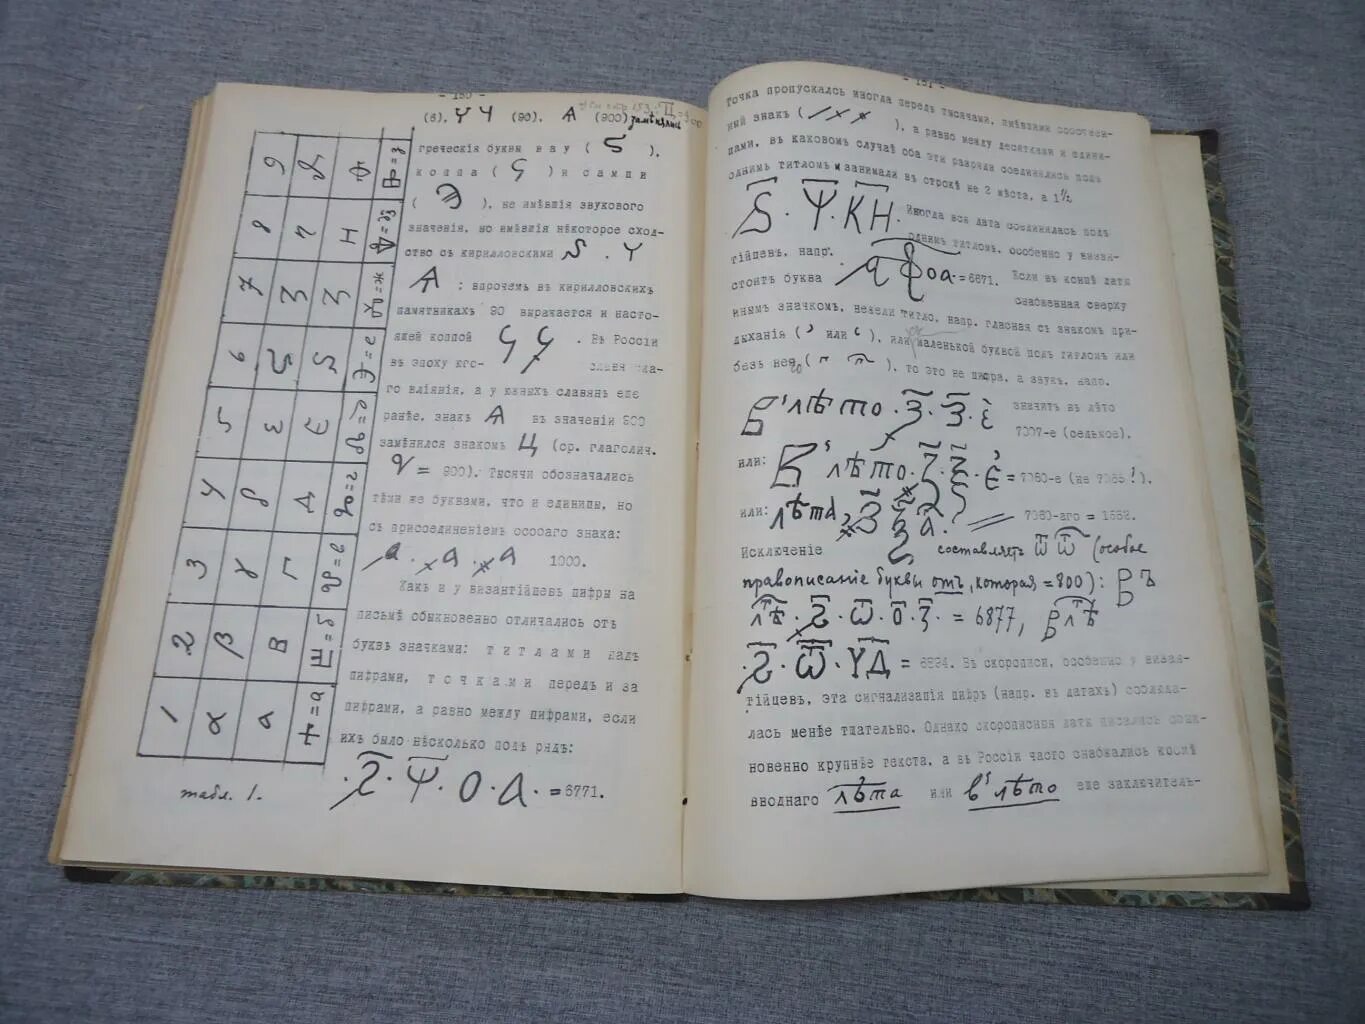 - 150 -
(6), Ҁ Ч (90), Ѧ (900) замѣнялись
греческія буквы вау ( Ѕ ),
коппа ( Ҁ ) и сампи
( Ϡ ), не имѣвшія звукового
значенія, но имѣвшія нѣкоторое сход-
ство съ кирилловскими Ѕ . Ч
Ѧ : впрочемъ въ кирилловскихъ
памятникахъ 90 выражается и насто-
ящей коппой Ҁ Ҁ . Въ Россіи
въ эпоху юго- славянска-
го вліянія, а у южныхъ славянъ еще
ранѣе, знакъ Ѧ въ значеніи 900
замѣнился знакомъ Ц (ср. глаголич.
= 900). Тысячи обозначались
тѣми же буквами, что и единицы, но
съ присоединеніемъ особаго знака:
а . ҂а . ҂а 1000.
Какъ и у византійцевъ цифры на
письмѣ обыкновенно отличались отъ
буквъ значками: титлами надъ
цифрами, точками передъ и за
цифрами, а равно между цифрами, если
ихъ было нѣсколько подъ рядъ:
. Ѕ . Ѱ . О . А . = 6771.
1 2 3 4 5 6 7 8 9
α β γ δ ε Ѕ ζ η θ
а в г д є ѕ з н ѳ
= а = б = в = г = д = е = ж = ѕ = з
табл. 1.
- 151 -
Точка пропускалсь иногда передъ тысячами, имѣвшими собствен-
ный знакъ ( ), а равно между десятками и едини-
цами, въ каковомъ случаѣ оба эти разряда соединялись подъ
однимъ титломъ и занимали въ строкѣ не 2 мѣста, а 1½
Ѕ . Ѱ . КН . Иногда вся дата соединялась подъ
однимъ титломъ, особенно у визан-
тійцевъ, напр. = 6671. Если въ концѣ даты
стоитъ буква снабженная сверху
инымъ значкомъ, нежели титло, напр. гласная съ знакомъ при-
дыханія ( или ), или маленькой буквой подъ титломъ или
безъ нея ( ), то это не цифра, а звукъ, напр.
В лѣто . З . З . Е значитъ въ лѣто
7007-е (седьмое).
или: В лѣто . З . Ѯ . Е = 7060-е (не 7065!).
или: лѣта З Ѯ а . 7060-аго = 1552.
Исключеніе составляетъ ѿ ѿ (особое
правописаніе буквы отъ, которая = 800): въ
лѣ . Ѕ . Ѡ . О . З . = 6877, в лѣ
. Ѕ . Ѿ . ЧД = 6894. Въ скорописи, особенно у визан-
тійцевъ, эта сигнализація цифръ (напр. въ датахъ) соблюда-
лась менѣе тщательно. Однако скорописныя даты писались обык-
новенно крупнѣе текста, а въ Россіи часто снабжались кромѣ
вводнаго лѣта или в лѣто еще заключитель-